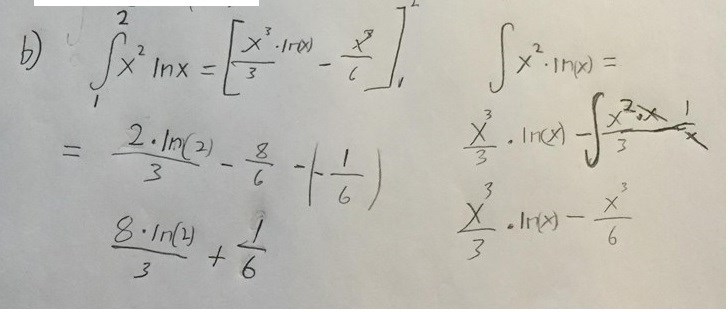 b) ∫₁² x² ln x = [x³/3 · ln(x) − x³/6]₁²
= 2·ln(2)/3 − 8/6 − (−1/6)
8·ln(2)/3 + 1/6
∫ x² · ln(x) =
x³/3 · ln(x) − ∫
x³/3 · ln(x) − x³/6